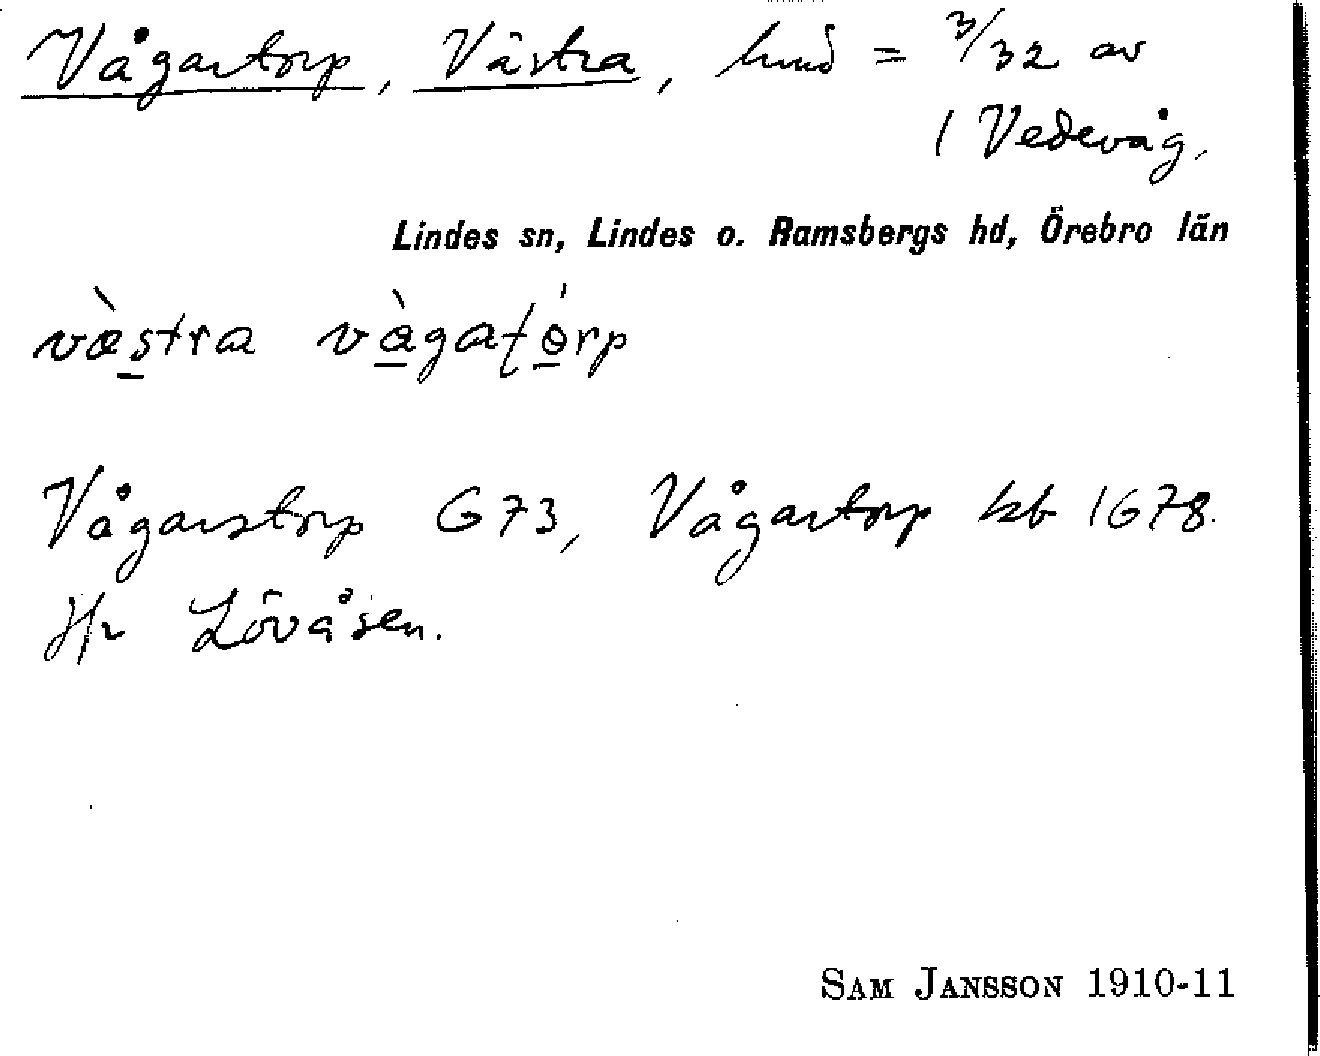 Vågartorp, Västra, hmd = 3/32 av
1 Vedevåg.
Lindes sn, Lindes o. Ramsbergs hd, Örebro län
væ̀stra vàgatórp
Vågarstorp G73, Vågartorp kb 1678.
Hr Lövåsen.
SAM JANSSON 1910-11